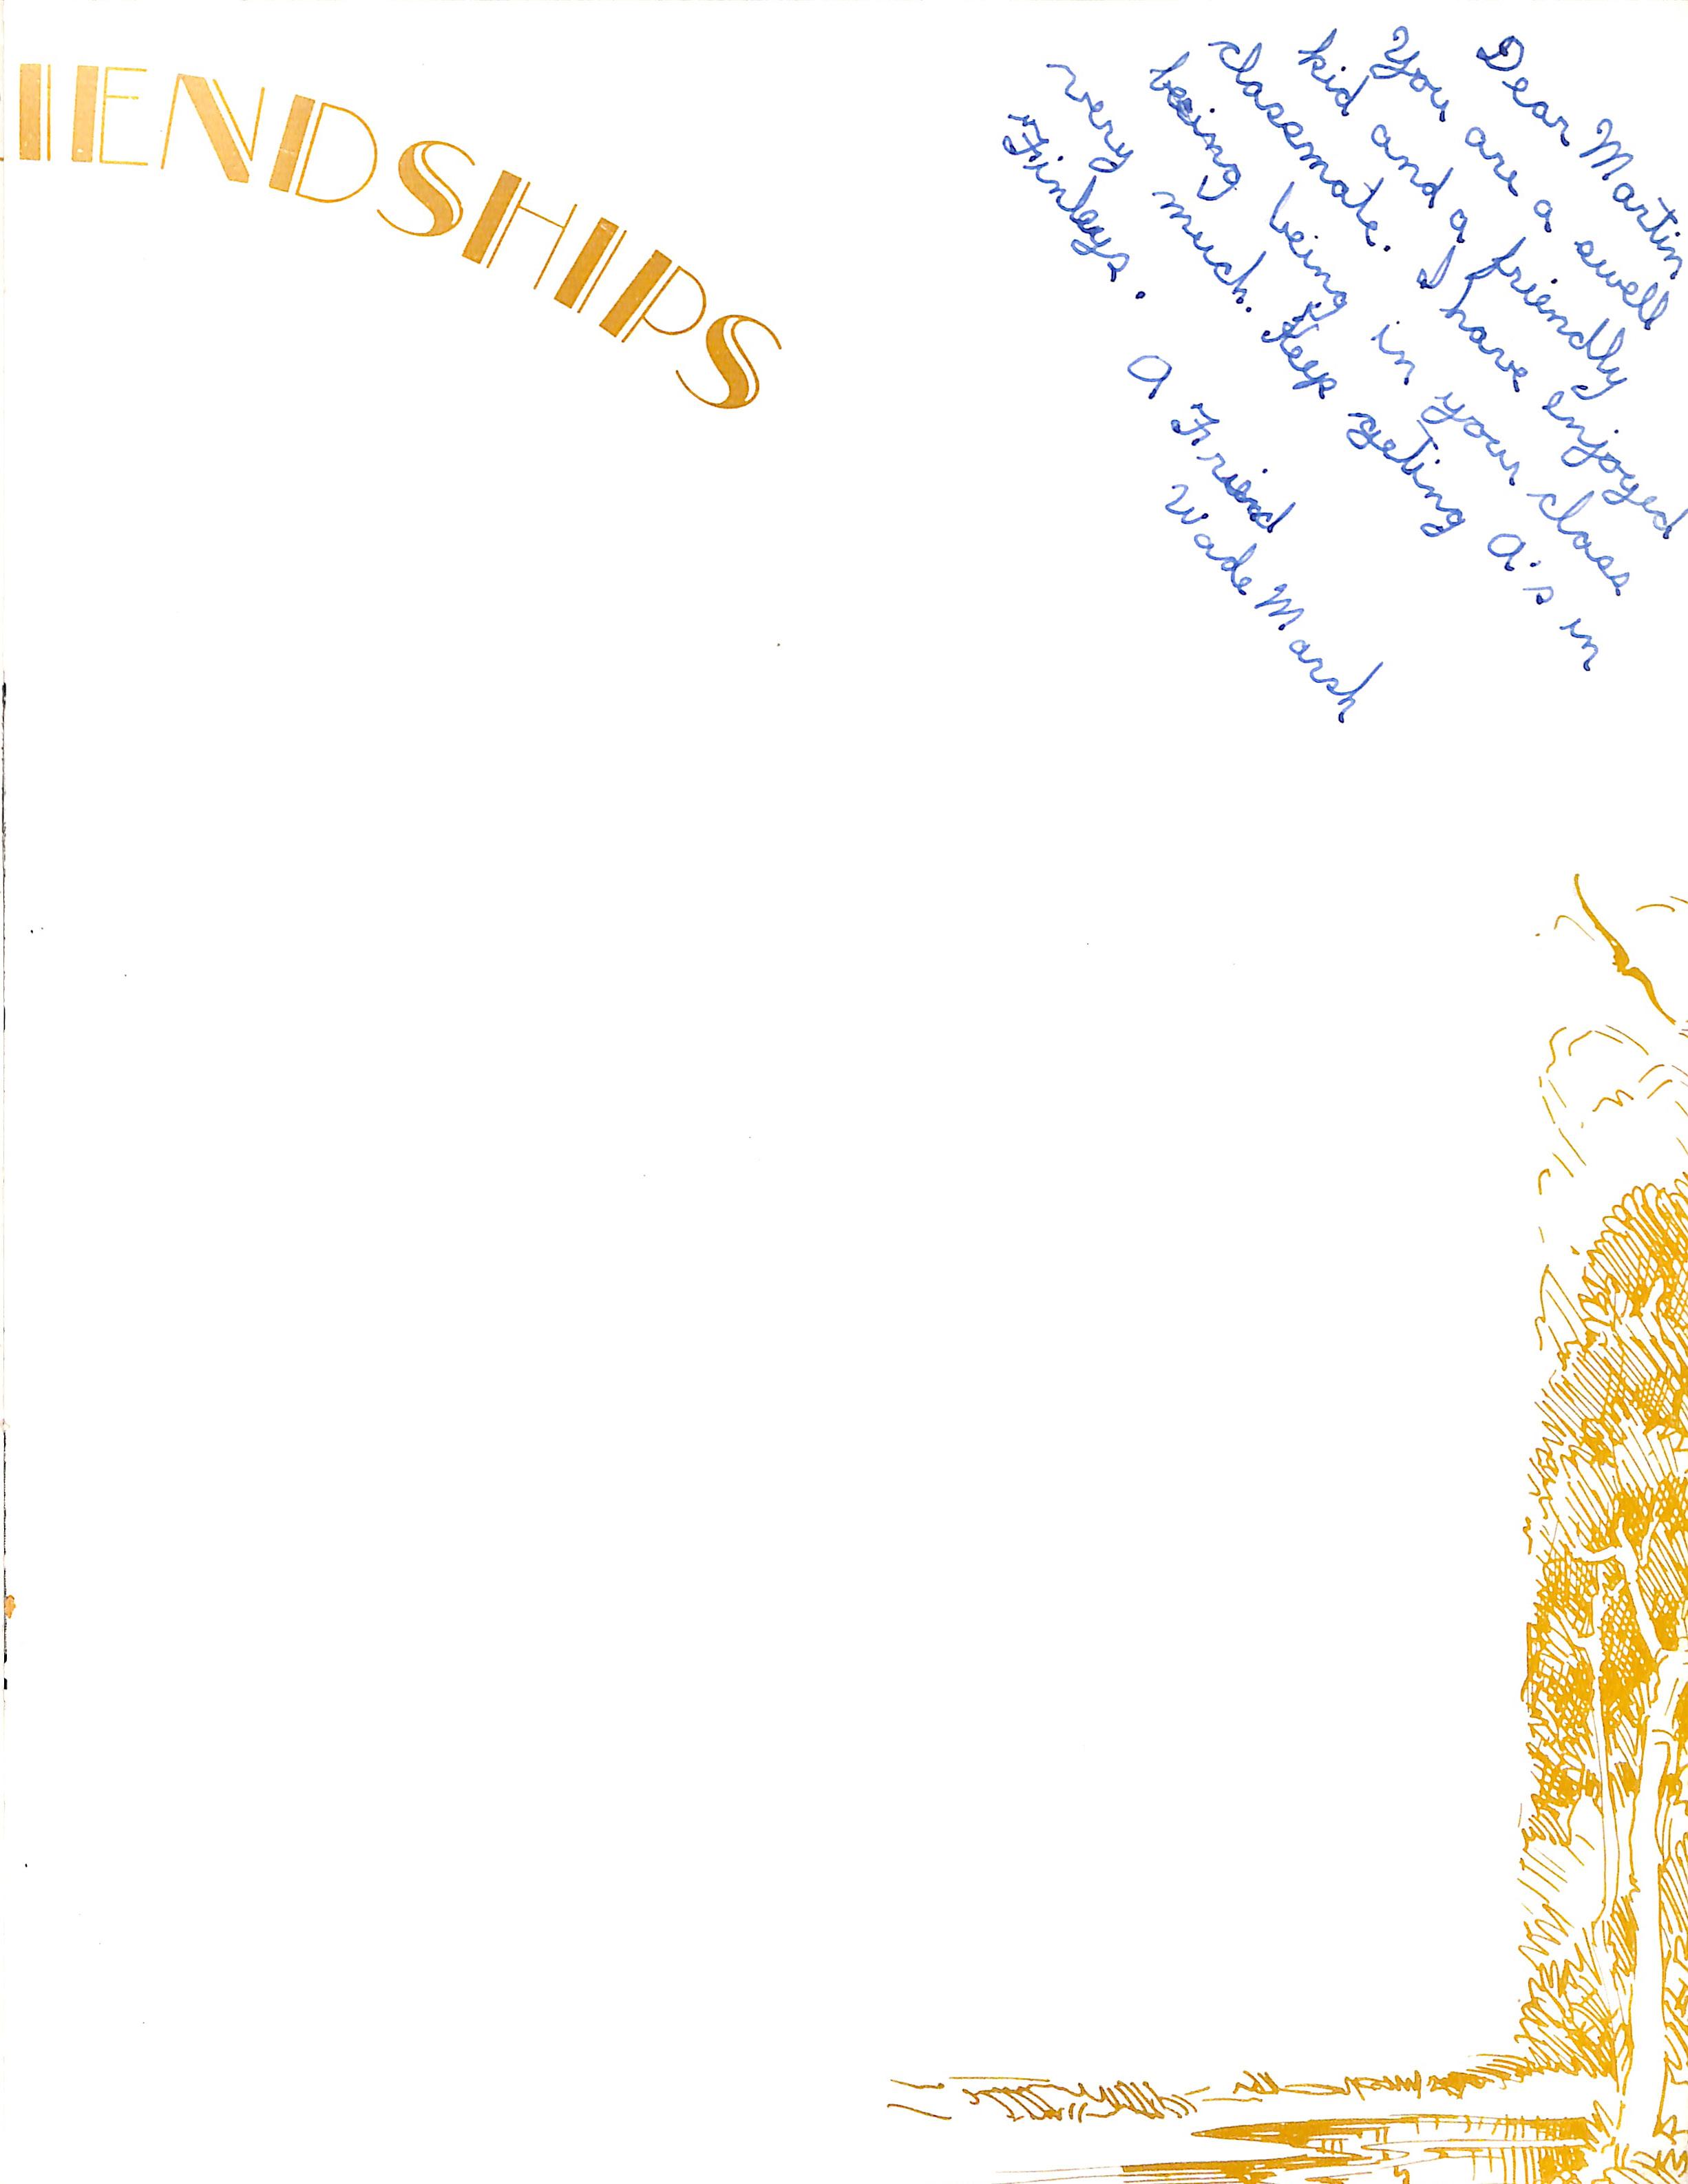 IENDSHIPS
Dear Martin
You are a swell
kid and a friendly
classmate. I have enjoyed
being being in your class
very much. Keep geting A's in
Finleys.
A Friend
Wade Marsh